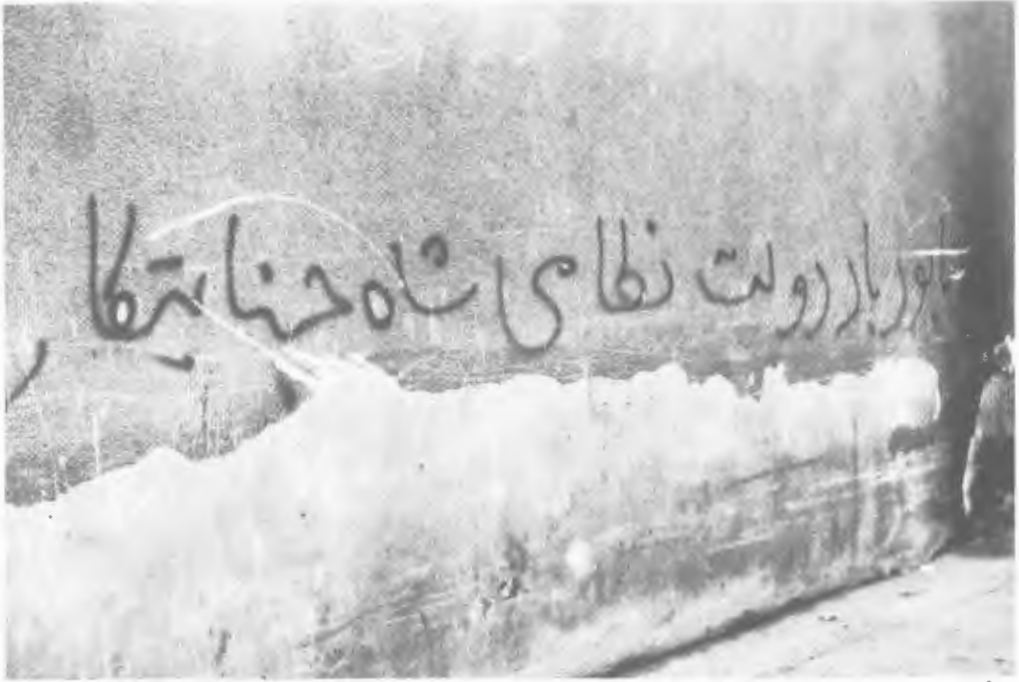 نابود باد دولت نظامی شاه جنایتکار